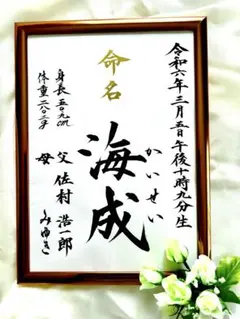 令和六年三月五日午後十時九分生
命名
海成
かいせい
身長 五〇、九cm
体重 三〇二三g
父 佐村 浩一郎
母 みゆき